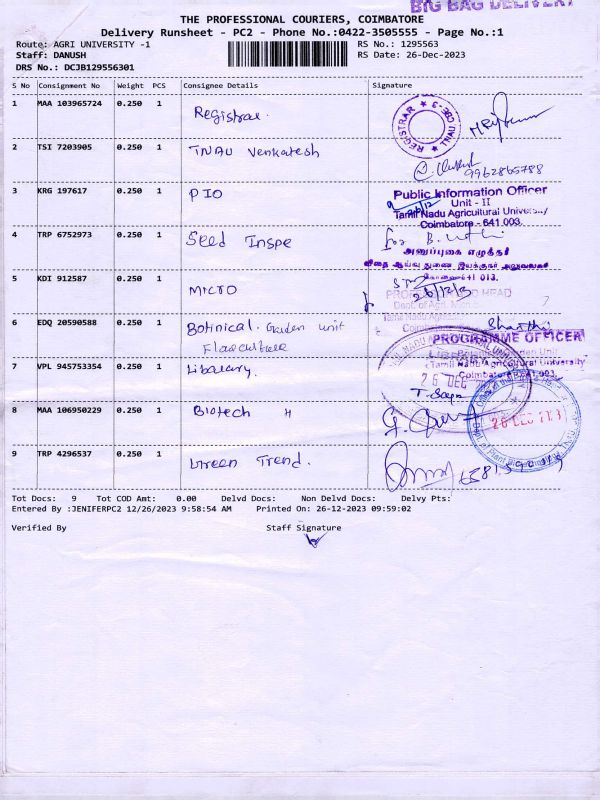 BIG BAG DELIVERY
THE PROFESSIONAL COURIERS, COIMBATORE
Delivery Runsheet - PC2 - Phone No.:0422-3505555 - Page No.:1
Route: AGRI UNIVERSITY -1
RS No.: 1295563
Staff: DANUSH
RS Date: 26-Dec-2023
DRS No.: DCJB129556301
S No Consignment No Weight PCS Consignee Details Signature
1 MAA 103965724 0.250 1 Registrar.
REGISTRAR TNAU
2 TSI 7203905 0.250 1 TNAU Venkatesh
9962865788
3 KRG 197617 0.250 1 PIO
Public Information Officer
Unit - II
Tamil Nadu Agricultural University
Coimbatore - 641 003.
4 TRP 6752973 0.250 1 Seed Inspe
for
5 KDI 912587 0.250 1 MICRO
26/12/23
6 EDQ 20590588 0.250 1 Botinical. Garden unit
Flouculture
PROGRAMME OFFICER
Tamil Nadu Agricultural University
Coimbatore-641 003.
7 VPL 945753354 0.250 1 Libarary.
26 DEC
8 MAA 106950229 0.250 1 Biotech
26 DEC
9 TRP 4296537 0.250 1 Green Trend.
Tot Docs: 9 Tot COD Amt: 0.00 Delvd Docs: Non Delvd Docs: Delvy Pts:
Entered By :JENIFERPC2 12/26/2023 9:58:54 AM Printed On: 26-12-2023 09:59:02
Verified By Staff Signature